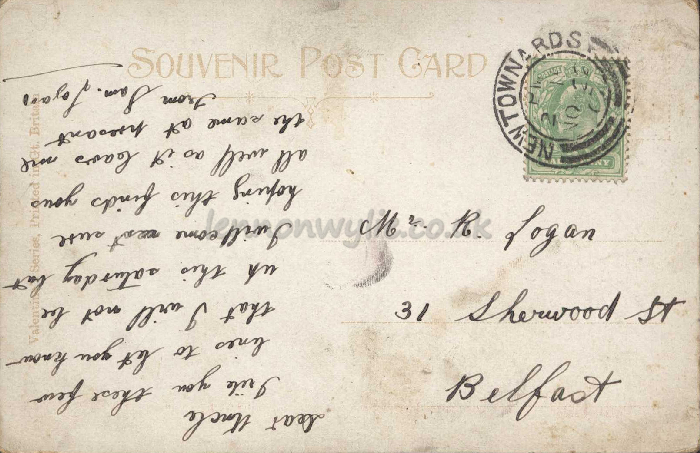 SOUVENIR POST CARD
NEWTOWNARDS
Valentine's Series, Printed in Gt. Britain
Mr. R. Logan
31 Sherwood St
Belfast
Deat Uncle
I rite you these few
lines to let you know
that I will not be
up this saturday but
I will come next sure
hoping this finds you
all well as it leavs me
the same at presant
from Sam. Logan
lennonwylie.co.uk